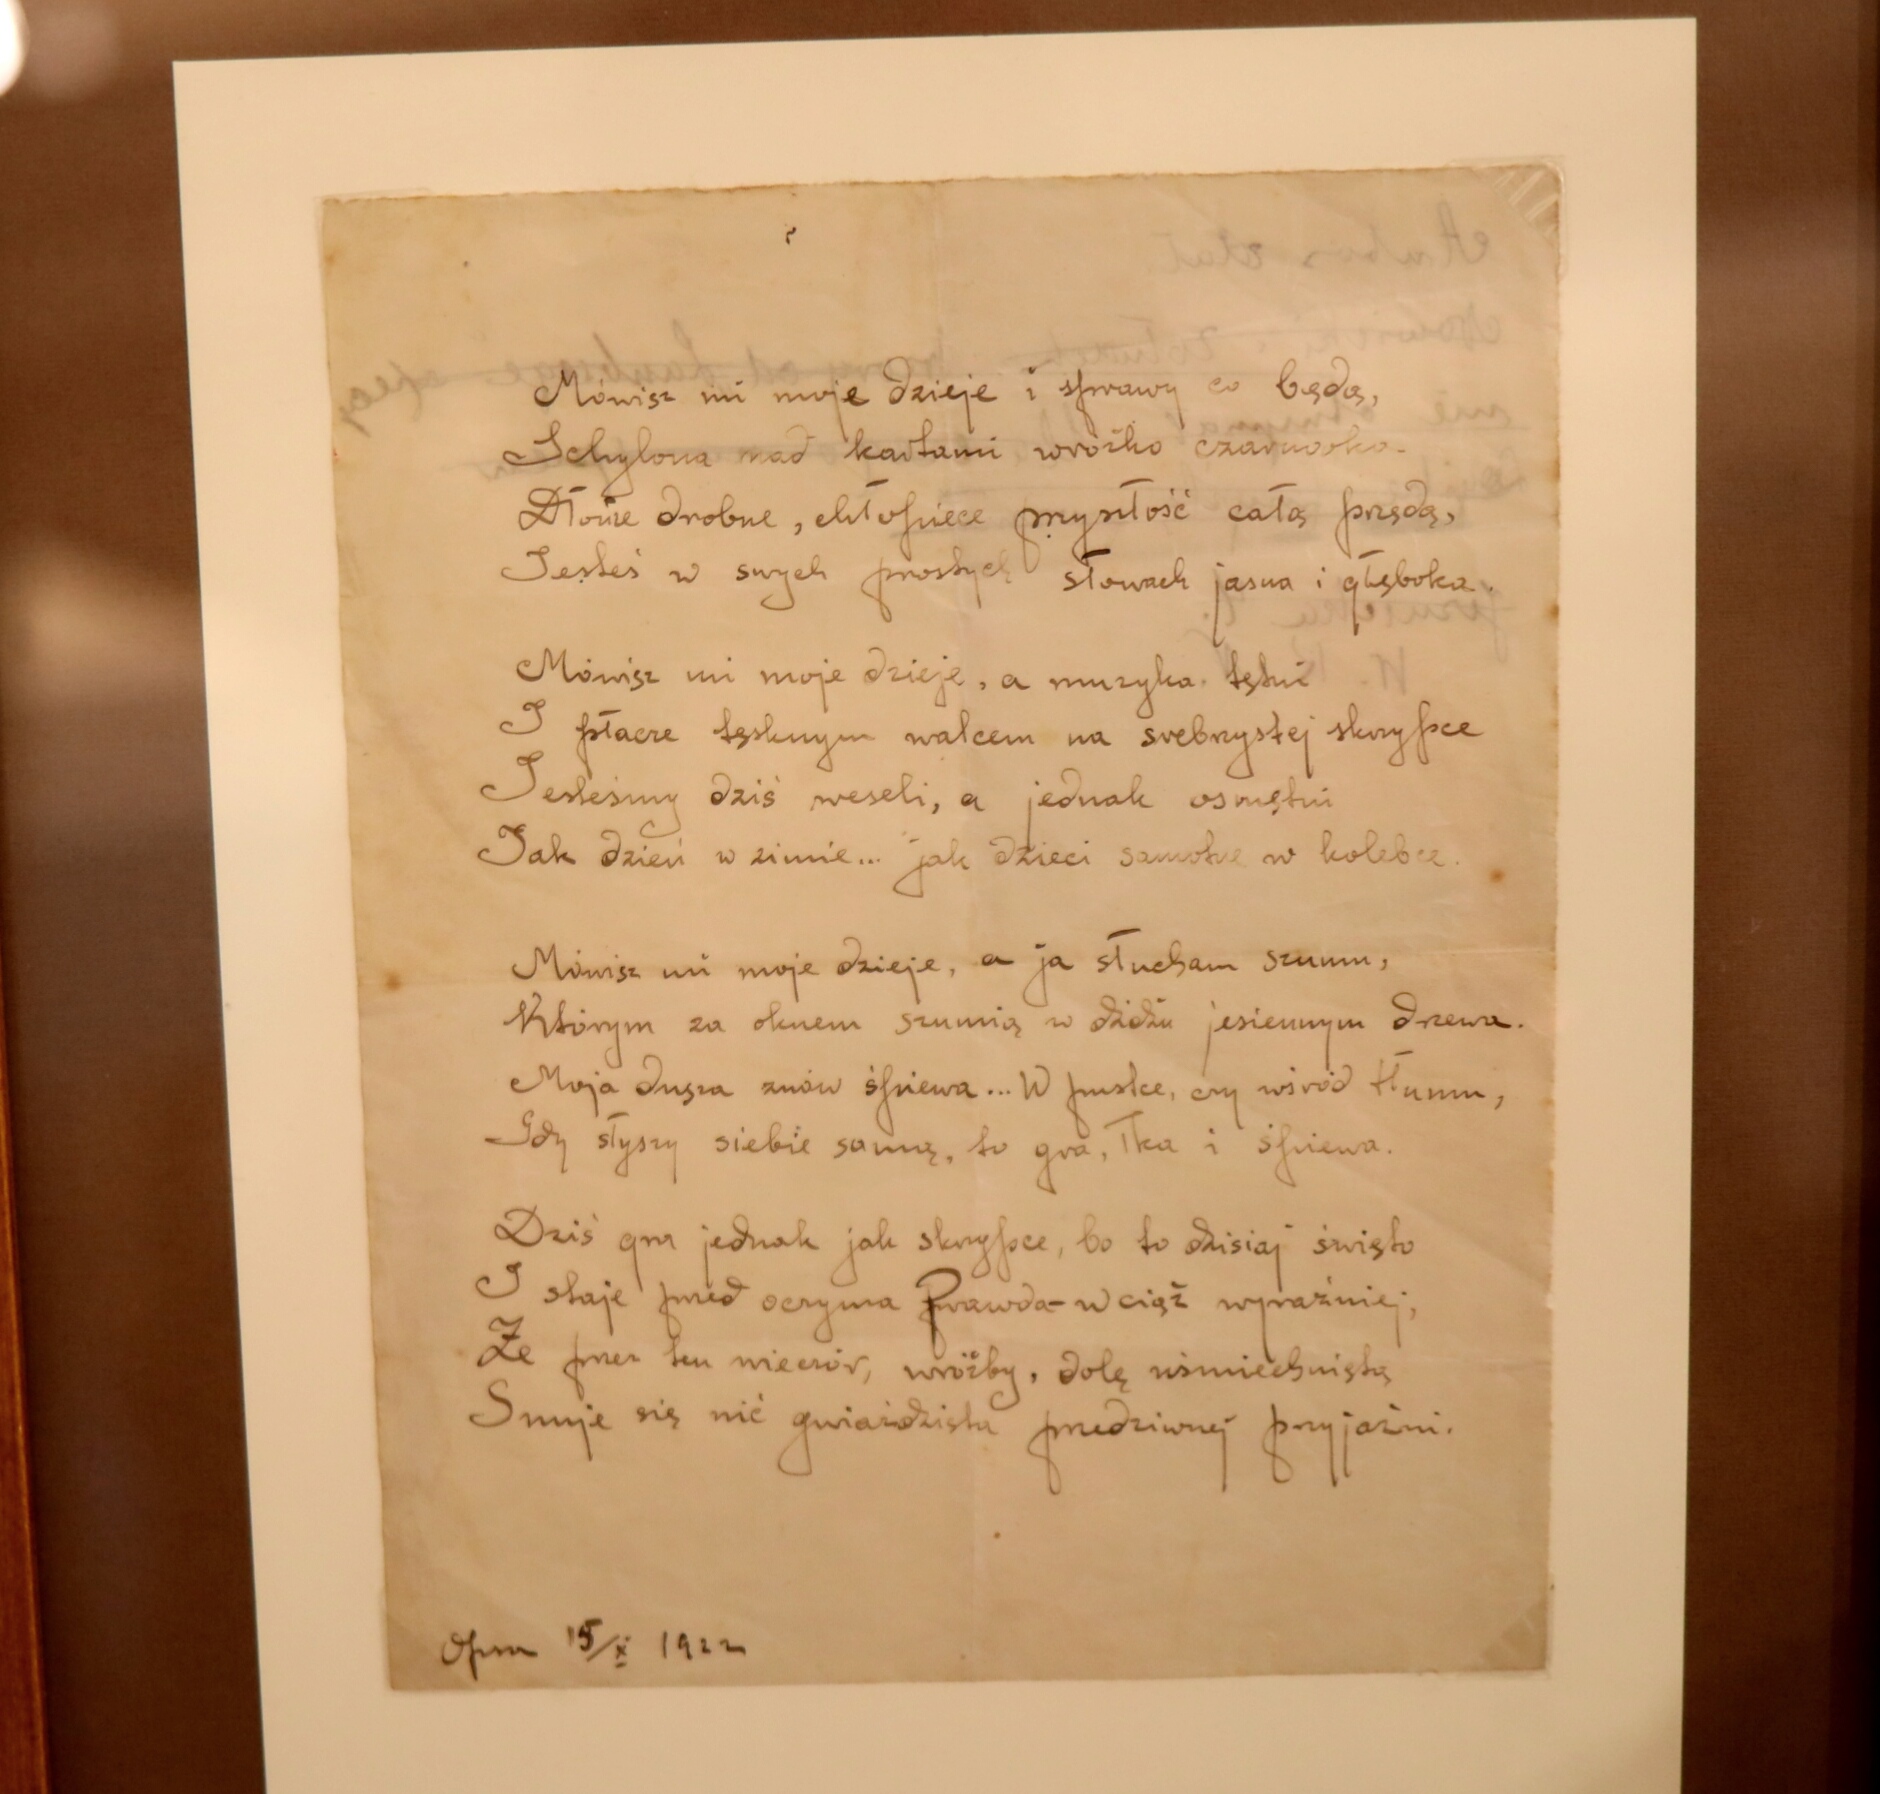 Mówisz mi moje dzieje i sprawy co będą,
Schylona nad kartami wróżko czarnooka.
Dłonie drobne, chłopięce przyszłość całą przędą,
Jesteś w swych prostych słowach jasna i głęboka.
Mówisz mi moje dzieje, a muzyka tętni
I płacze tęsknym walcem na srebrzystej skrzypce
Jesteśmy dziś weseli, a jednak osmętni
Jak dzień w zimie... jak dzieci samotne w kolebce.
Mówisz mi moje dzieje, a ja słucham szumu,
Którym za oknem szumią w dżdżu jesiennym drzewa.
Moja dusza znów śpiewa... W pustce, czy wśród tłumu,
Gdy słyszy siebie samą, to gra, łka i śpiewa.
Dziś gra jednak jak skrzypce, bo to dzisiaj święto
I staje przed oczyma Prawda - wciąż wyraźniej,
Że przez ten wieczór, wróżby, dolę uśmiechniętą
Snuje się nić gwiaździsta przedziwnej przyjaźni.
15/X 1922